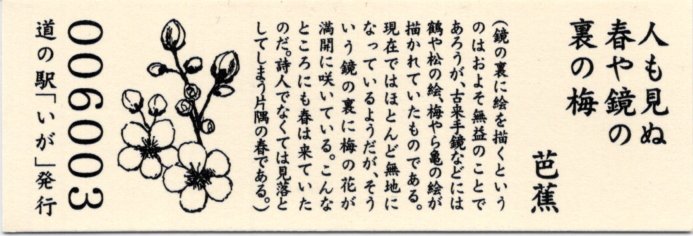 人も見ぬ
春や鏡の
裏の梅
芭蕉
（鏡の裏に絵を描くという
のはおよそ無益のことで
あろうが、古来手鏡などには
鶴や松の絵、梅やら亀の絵が
描かれていたものである。
現在ではほとんど無地に
なっているようだが、そう
いう鏡の裏に梅の花が
満開に咲いている。こんな
ところにも春は来ていた
のだ。詩人でなくては見落と
してしまう片隅の春である。）
006003
道の駅「いが」発行